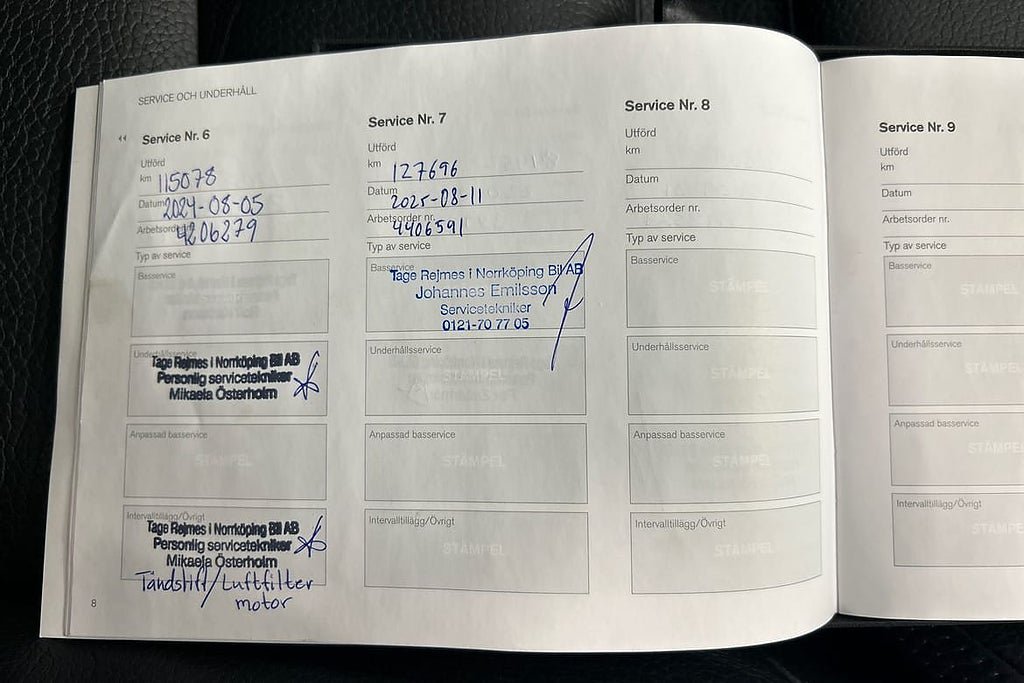 SERVICE OCH UNDERHÅLL
Service Nr. 6
Utförd
km 115078
Datum 2024-08-05
Arbetsorder nr. 4206279
Typ av service
Basservice
Underhållsservice
Tage Rejmes i Norrköping Bil AB
Personlig servicetekniker
Mikaela Österholm
Anpassad basservice
STÄMPEL
Intervalltillägg/Övrigt
Tage Rejmes i Norrköping Bil AB
Personlig servicetekniker
Mikaela Österholm
Tändstift/Luftfilter
motor
8
Service Nr. 7
Utförd
km 127696
Datum 2025-08-11
Arbetsorder nr. 4406591
Typ av service
Basservice
Tage Rejmes i Norrköping Bil AB
Johannes Emilsson
Servicetekniker
0121-70 77 05
Underhållsservice
STÄMPEL
Anpassad basservice
STÄMPEL
Intervalltillägg/Övrigt
STÄMPEL
Service Nr. 8
Utförd
km
Datum
Arbetsorder nr.
Typ av service
Basservice
STÄMPEL
Underhållsservice
STÄMPEL
Anpassad basservice
STÄMPEL
Intervalltillägg/Övrigt
STÄMPEL
Service Nr. 9
Utförd
km
Datum
Arbetsorder nr.
Typ av service
Basservice
STÄMPEL
Underhållsservice
STÄMPEL
Anpassad basservice
STÄMPEL
Intervalltillägg/Övrigt
STÄMPEL